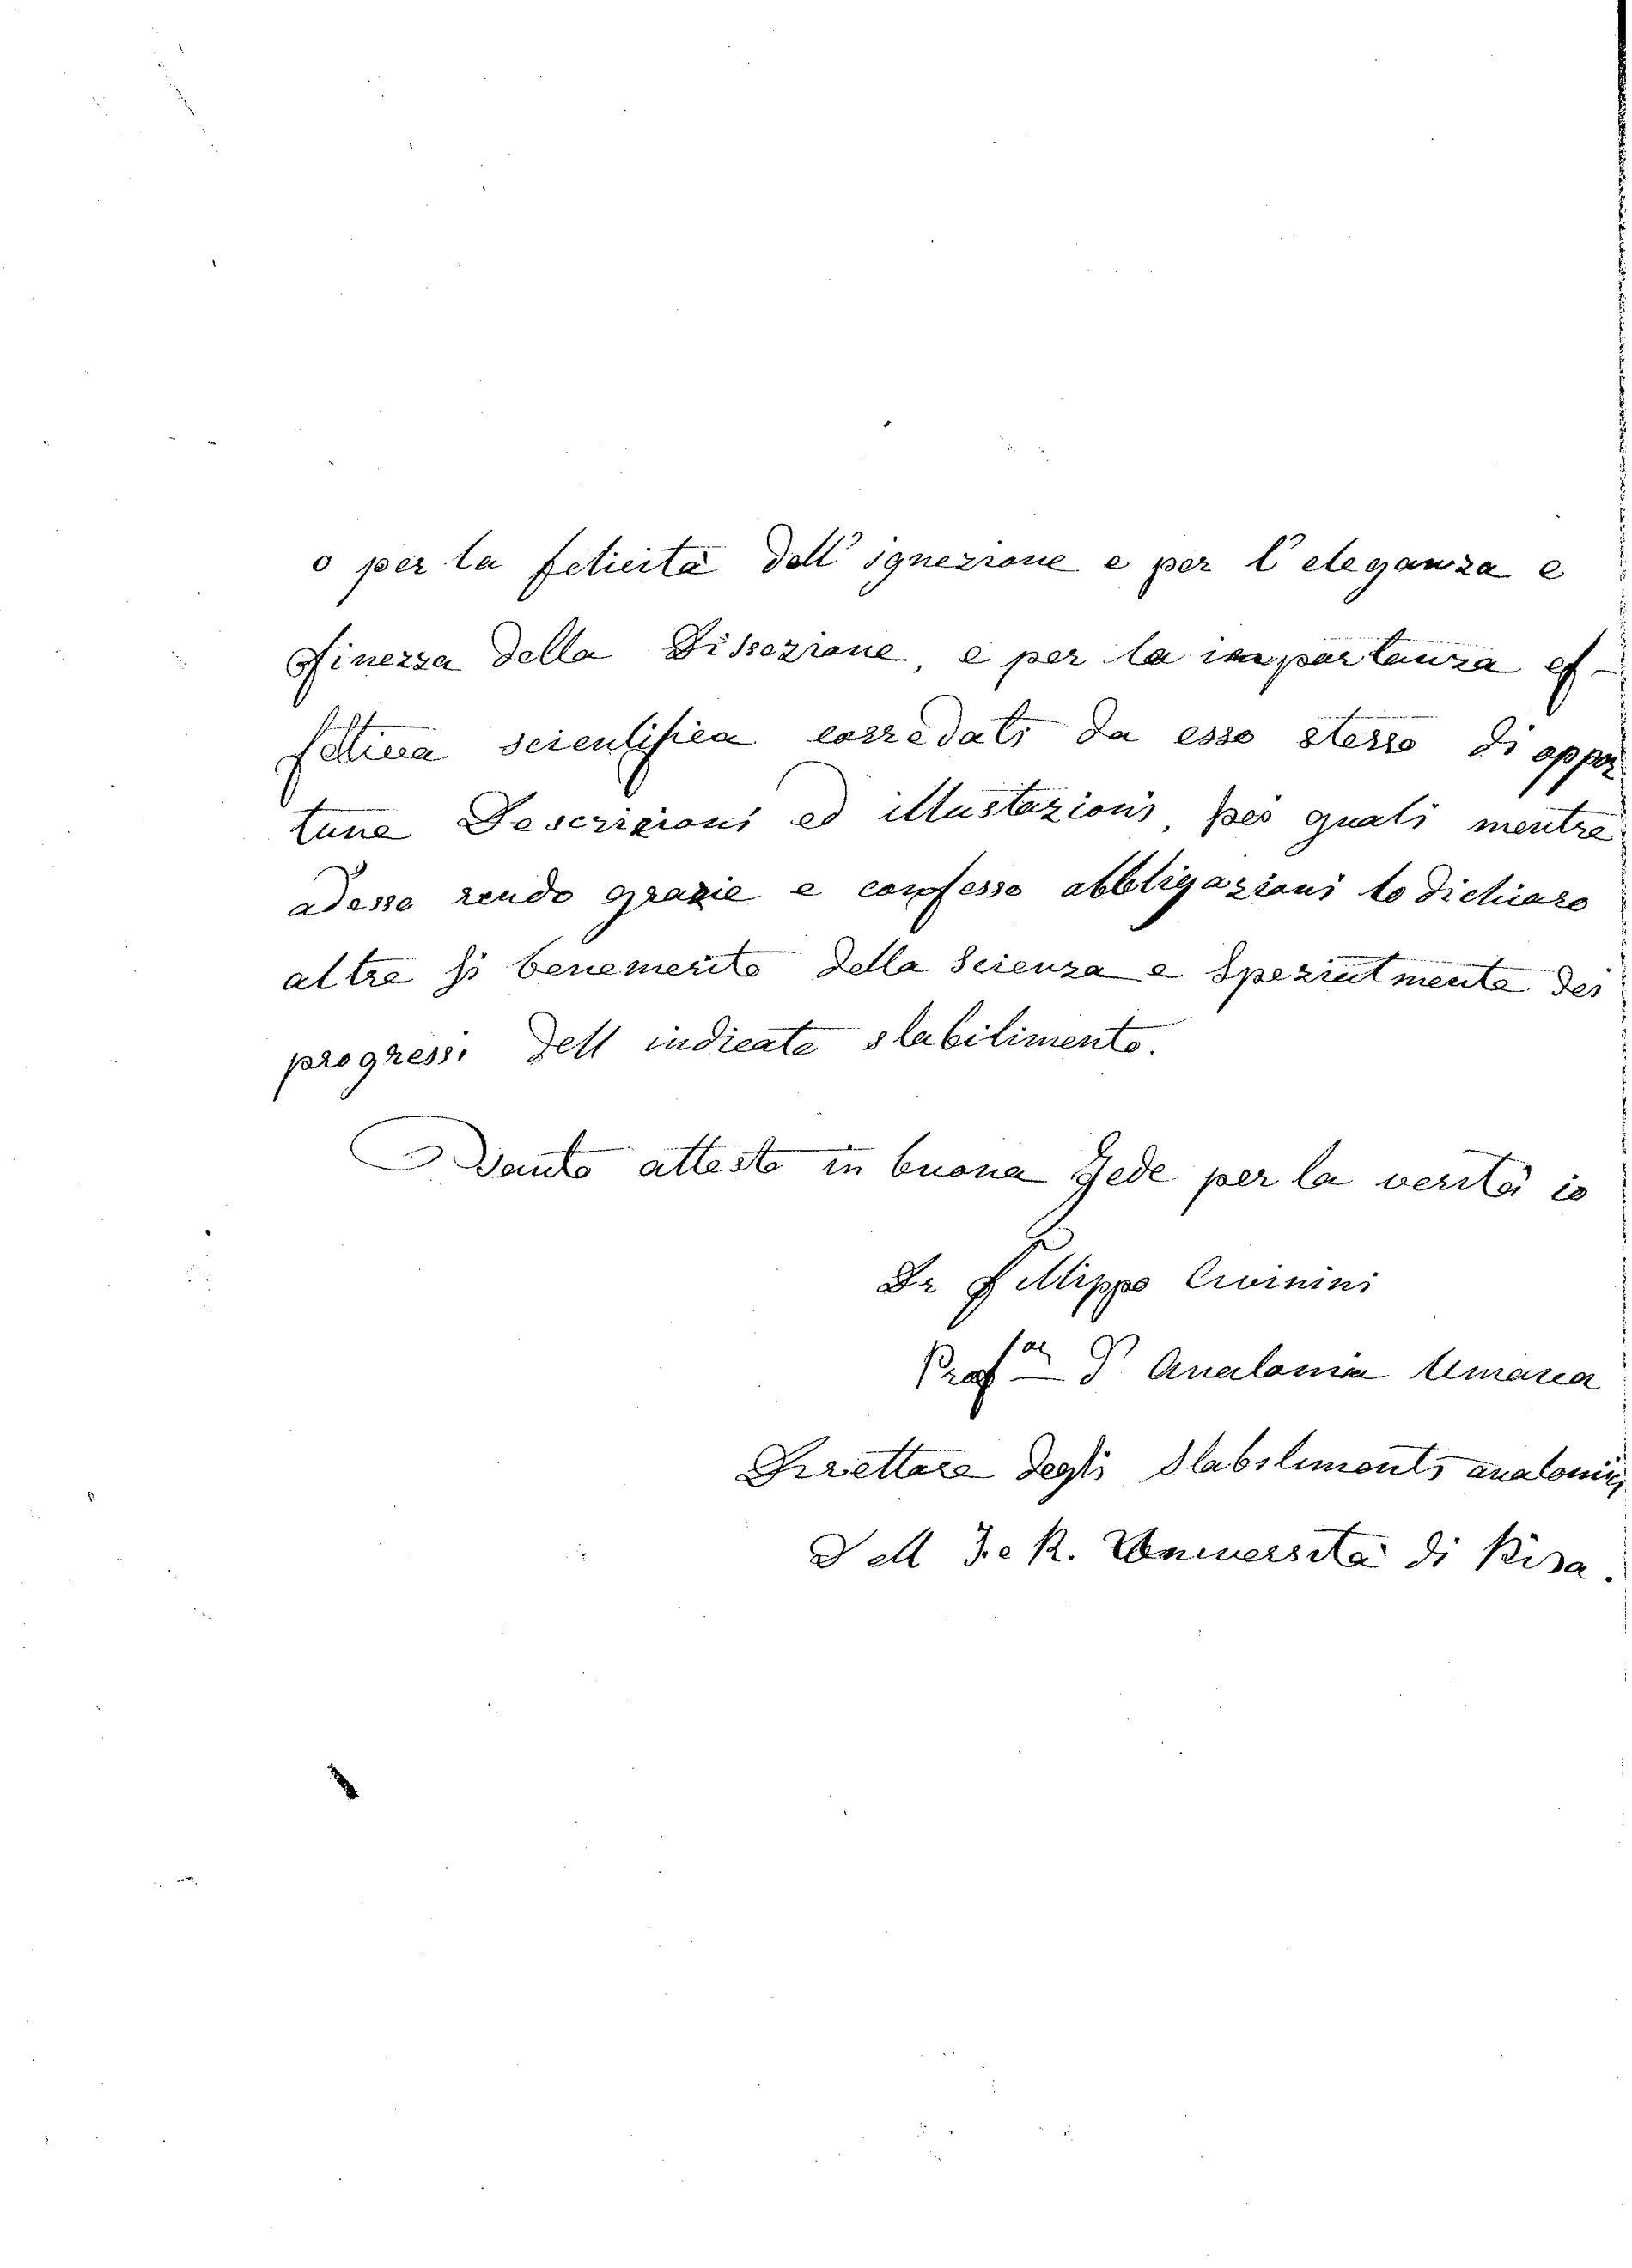 o per la felicità dell' ignezione e per l'eleganza e
finezza della Dissezione, e per la importanza ef-
fettiva scientifica corredati da esso stesso di oppor
tune Descrizioni ed illustazioni, pei quali mentre
adesso rendo grazie e confesso obbligazioni lo dichiaro
altre si benemerito della Scienza e Spezialmente dei
progressi dell indicato stabilimento.
Tanto attesto in buona Fede per la verità io
Dr Fillippo Civinini
Prof. d' Anatomia Umana
Direttore degli Stabilimenti anatomici
Dell I. e R. Università di Pisa.